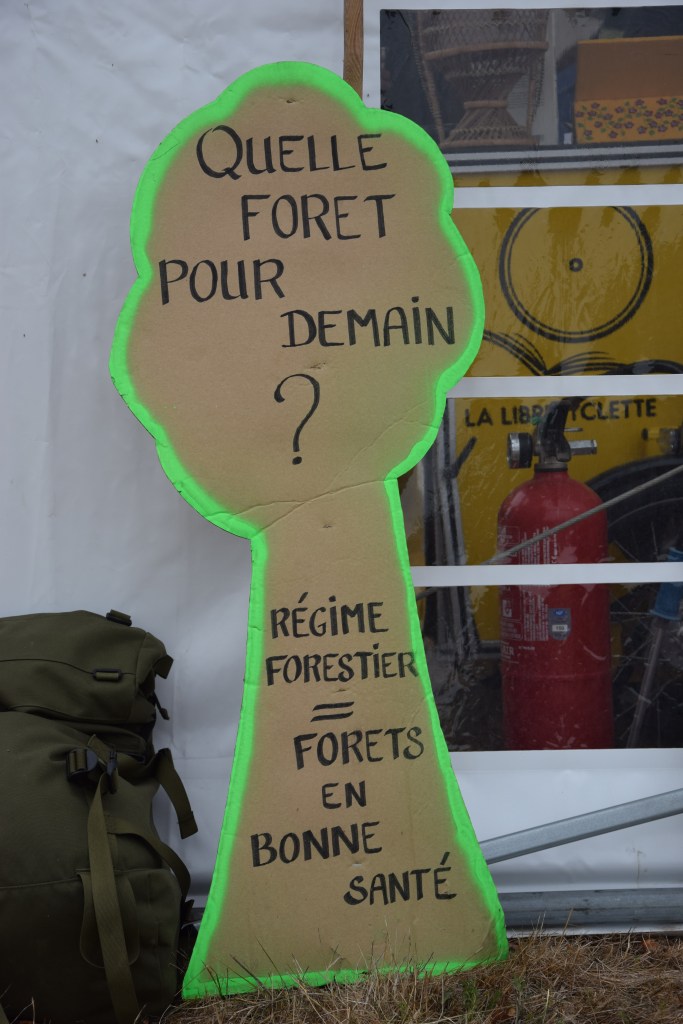 QUELLE
FORET
POUR
DEMAIN
?
RÉGIME
FORESTIER
=
FORETS
EN
BONNE
SANTÉ